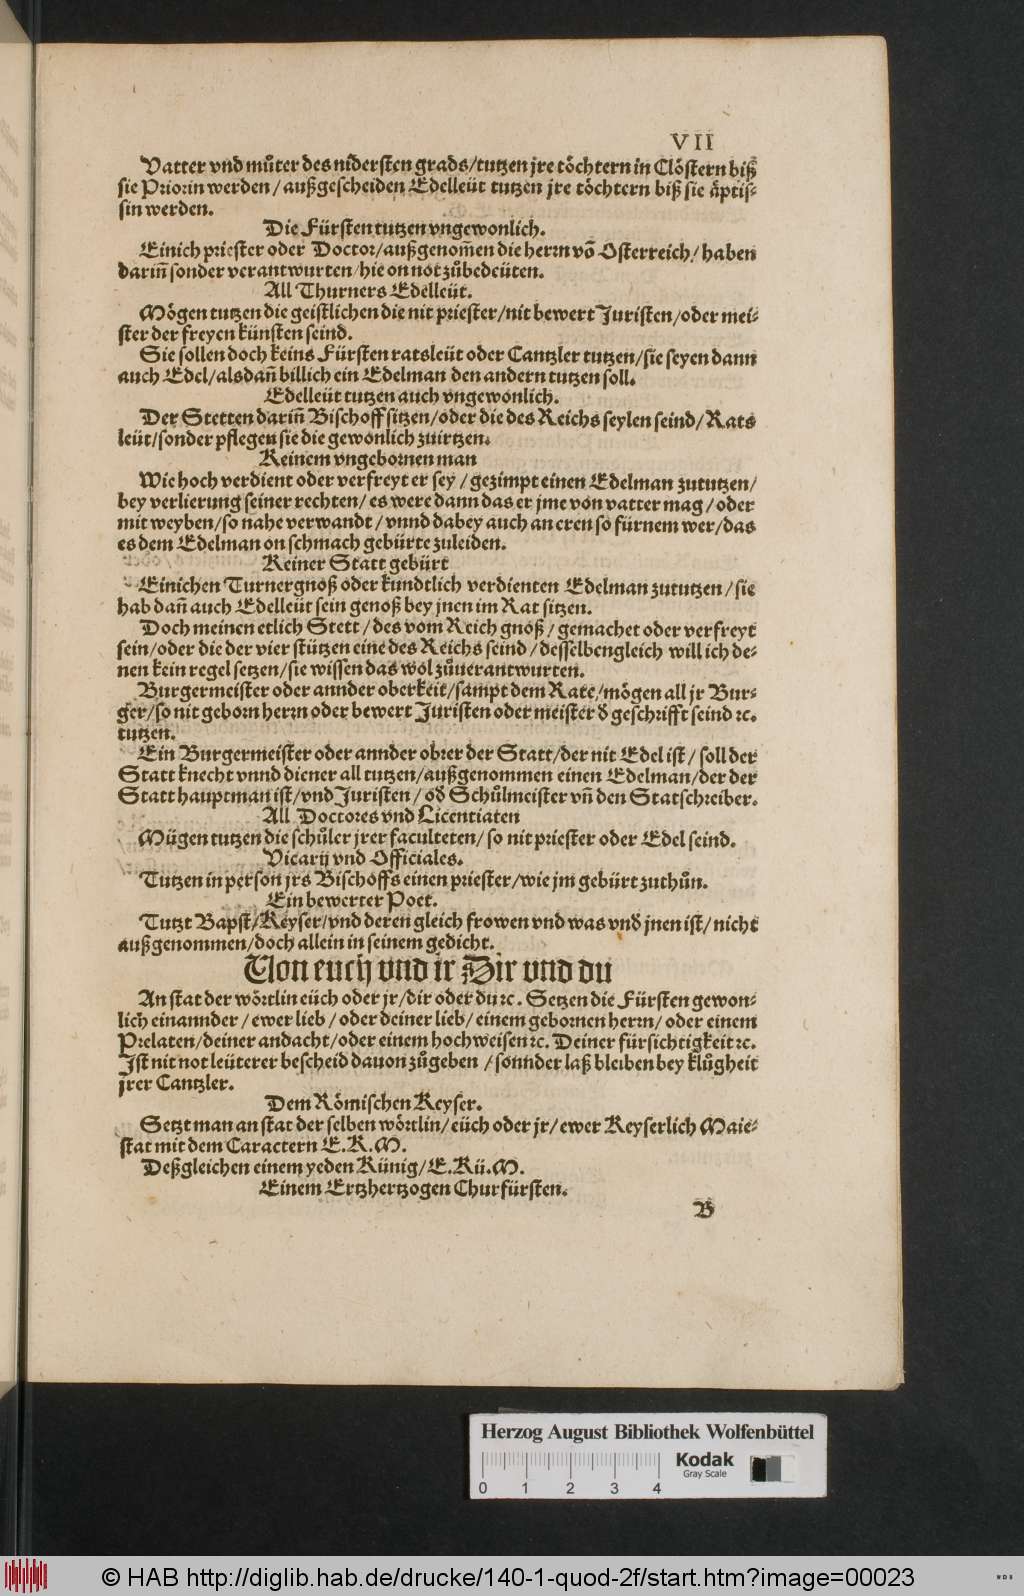 VII
Vatter vnd můter des nidersten grads/tutzen jre töchtern in Clöstern biß
sie Priorin werden/außgescheiden Edelleüt tutzen jre töchtern biß sie åptis⸗
sin werden.
Die Fürsten tutzen vngewonlich.
Einich priester oder Doctor/außgenom̄en die herrn võ Osterreich/haben
darin̄ sonder verantwurten/hie on not zůbedeüten.
All Thurners Edelleüt.
Mögen tutzen die geistlichen die nit priester/nit bewert Juristen/oder mei⸗
ster der freyen künsten seind.
Sie sollen doch keins Fürsten ratsleüt oder Cantzler tutzen/sie seyen dann
auch Edel/alsdan̄ billich ein Edelman den andern tutzen soll.
Edelleüt tutzen auch vngewonlich.
Der Stetten darin̄ Bischoff sitzen/oder die des Reichs seylen seind/Rats
leüt/sonder pflegen sie die gewonlich zuirtzen.
Keinem vngebornen man
Wie hoch verdient oder verfreyt er sey/gezimpt einen Edelman zututzen/
bey verlierung seiner rechten/es were dann das er jme von vatter mag/oder
mit weyben/so nahe verwandt/vnnd dabey auch an eren so fürnem wer/das
es dem Edelman on schmach gebürte zuleiden.
Keiner Statt gebürt
Einichen Turnergnoß oder kundtlich verdienten Edelman zututzen/sie
hab dan̄ auch Edelleüt sein genoß bey jnen im Rat sitzen.
Doch meinen etlich Stett/des vom Reich gnoß/gemachet oder verfreyt
sein/oder die der vier stützen eine des Reichs seind/desselbengleich will ich de⸗
nen kein regel setzen/sie wissen das wol zůuerantwurten.
Burgermeister oder annder oberkeit/sampt dem Rate/mögen all jr Bur⸗
ger/so nit geborn herrn oder bewert Juristen oder meister d̓ geschrifft seind ⁊c.
tutzen.
Ein Burgermeister oder annder obrer der Statt/der nit Edel ist/soll der
Statt knecht vnnd diener all tutzen/außgenommen einen Edelman/der der
Statt hauptman ist/vnd Juristen/od̓ Schůlmeister vn̄ den Statschreiber.
All Doctores vnd Licentiaten
Mügen tutzen die schůler jrer faculteten/so nit priester oder Edel seind.
Vicarij vnd Officiales.
Tutzen in person jrs Bischoffs einen priester/wie jm gebürt zuthůn.
Ein bewerter Poet.
Tutzt Bapst/Keyser/vnd deren gleich frowen vnd was vnd̓ jnen ist/nicht
außgenommen/doch allein in seinem gedicht.
Von euch vnd ir Dir vnd du
An stat der wörtlin eüch oder jr/dir oder du ⁊c. Setzen die Fürsten gewon⸗
lich einannder/ewer lieb/oder deiner lieb/einem gebornen herrn/oder einem
Prelaten/deiner andacht/oder einem hochweisen ⁊c. Deiner fürsichtigkeit ⁊c.
Jst nit not leüterer bescheid dauon zůgeben/sonnder laß bleiben bey klůgheit
jrer Cantzler.
Dem Römischen Keyser.
Setzt man an stat der selben wörtlin/eüch oder jr/ewer Keyserlich Maie⸗
stat mit dem Caractern E.K.M.
Deßgleichen einem yeden Künig/E.Kü.M.
Einem Ertzhertzogen Churfürsten.
B
Herzog August Bibliothek Wolfenbüttel
Kodak
Gray Scale
0 1 2 3 4
© HAB http://diglib.hab.de/drucke/140-1-quod-2f/start.htm?image=00023